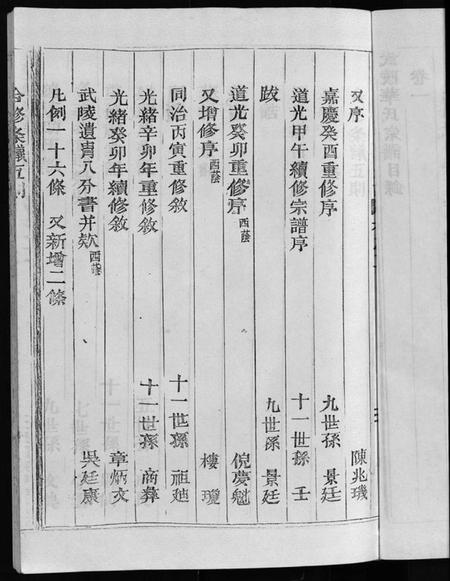 又序 陳兆璣
嘉慶癸酉重修序 九世孫 景廷
道光甲午續修宗譜序 十一世孫 壬
跋 九世孫 景廷
道光癸卯重修序 西蔭 倪夢魁
又增修序 西蔭 樓瓊
同治丙寅重修敘 十一世孫 祖廸
光緒辛卯年重修敘 十一世孫 商彝
光緒癸卯年續修敘 章炳文
武陵遺胄八分書并欵 西蔭 吳廷康
凡例一十六條 又新增二條
合修条議五則